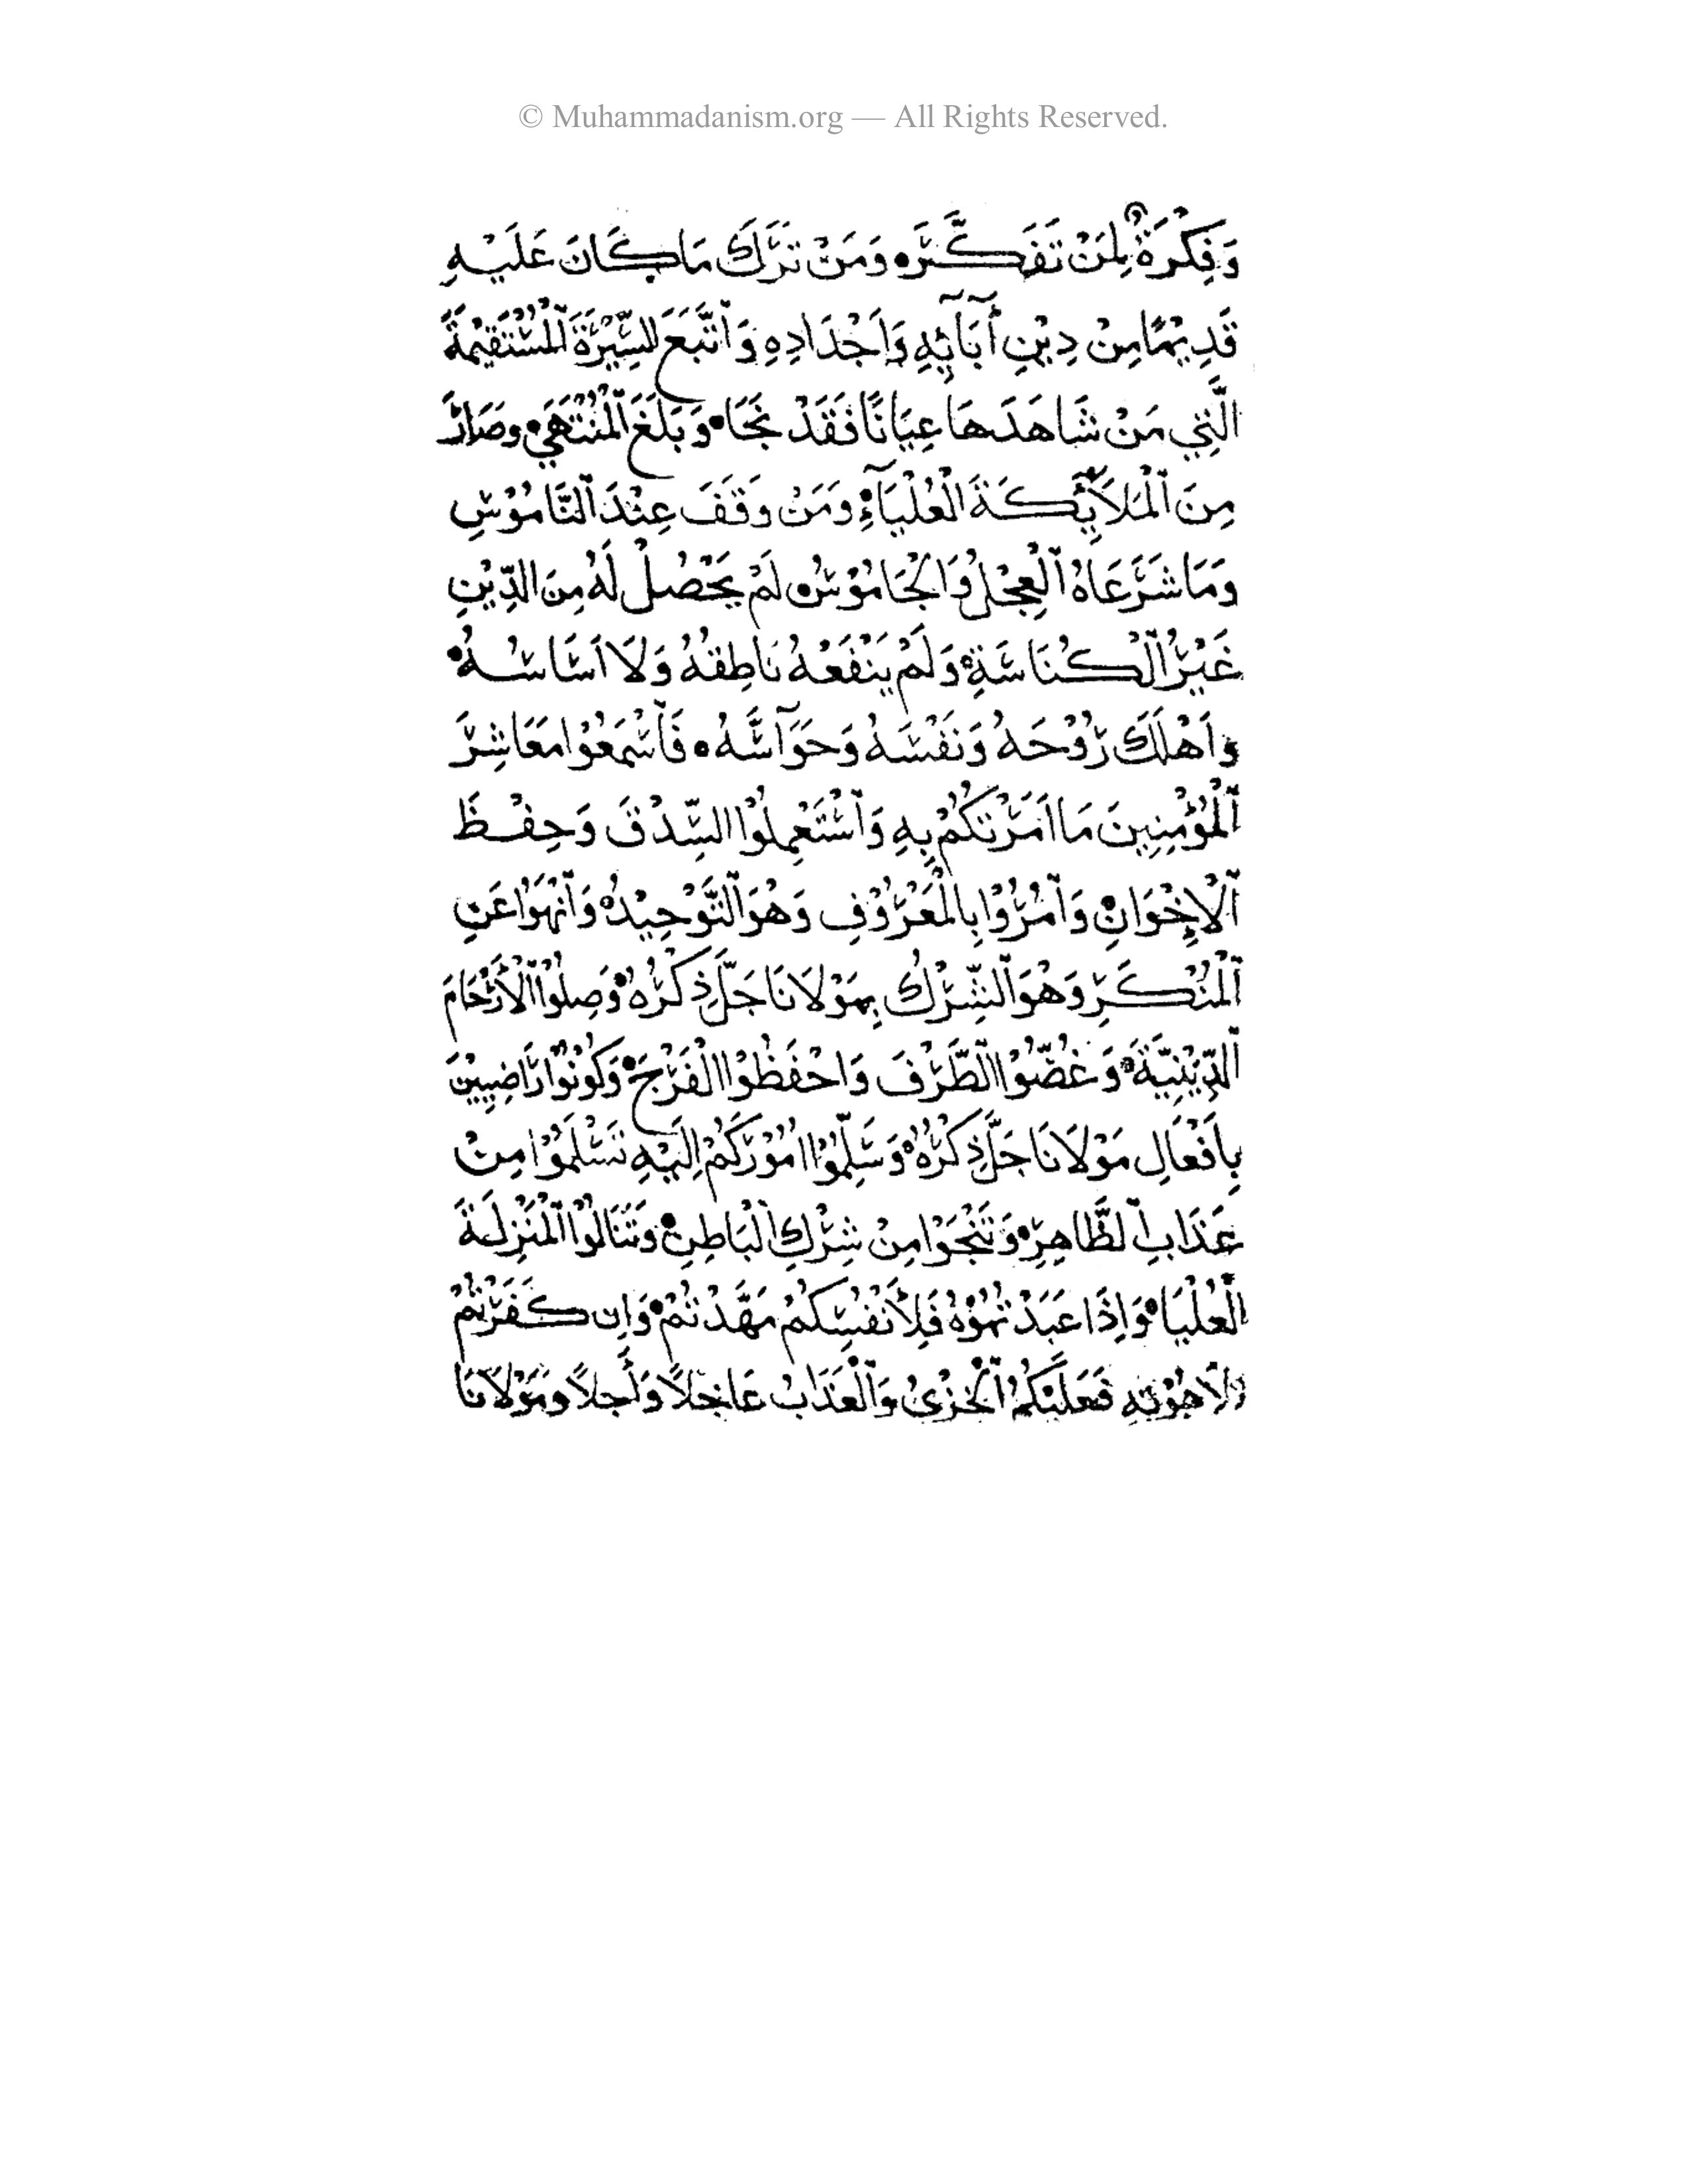 © Muhammadanism.org — All Rights Reserved.
وَفِكْرَةٌ لِمَنْ تَفَكَّرَ۰ وَمَنْ تَرَكَ مَا كَانَ عَلَيْهِ
قَدِيْمًا مِنْ دِيْنِ أَبَآئِهِ وَاَجْدَادِهِ وَاتَّبَعَ السِّيْرَةَ الْمُسْتَقِيْمَةَ
الَّتِي مَنْ شَاهَدَهَا عِيَانًا فَقَدْ نَجَا۰ وَبَلَغَ الْمُنْتَهَي۰ وَصَارَ
مِنَ الْمَلَايِٕكَةَ الْعُلْيَآءِ۰ وَمَنْ وَقَفَ عِنْدَ النَّامُوْسِ
وَمَا شَرَّعَاهُ الْعِجْلُ وَالْجَامُوْسُ۰ لَمْ يَحْصُلْ لَهُ مِنَ الدِّيْنِ
غَيْرُ الْكُنَاسَةِ۰ وَلَمْ يَنْفَعْهُ نَاطِقُهُ وَلَا اَسَاسُهُ۰
وَاَهْلَكَ رُوْحَهُ وَنَفْسَهُ وَحَوَآسَّهُ۰ فَاسْمَعُوْا مَعَاشِرَ
الْمُؤْمِنِيْنَ مَا اَمَرْتُكُمْ بِهِ وَاسْتَعْمِلُوْا السِّدْقَ وَحِفْظَ
الْاِخْوَانِ۰ وَآمُرُوْا بِالْمَعْرُوْفِ وَهُوَ التَّوْحِيْدُ۰ وَانْهَوْا عَنِ
الْمُنْكَرِ وَهْوَ الشِّرْكُ بِمَوْلَانَا جَلَّ ذِكْرُهُ۰ وَصِلُوْا الْأَرْحَامَ
الدِّيْنِيَّةَ۰ وَغُضُّوْا الطَّرْفَ وَاحْفَظُوْا الْفَرْجَ۰ وَكُوْنُوْا رَاضِيِيْنَ
بِاَفْعَالِ مَوْلَانَا جَلَّ ذِكْرُهُ۰ وَسَلِّمُوْا اُمُوْرَكُمْ اِلَيْهِ تَسْلَمُوْا مِنْ
عَذَابِ الظَّاهِرِ۰ وَتَنْجَوْا مِنْ شِرْكِ الْبَاطِنِ۰ وَتَنَالُوْا الْمَنْزِلَةَ
الْعُلْيَا۰ وَاِذَا عَبَدْتُمُوْهُ فَلِأَنْفُسِكُمْ مَهَّدْتُمْ۰ وَاِن كَفَرْتُمْ
لَاهُوْتِهِ فَعَلَيْكُمُ الْخِزْىُ وَالْعَذَابُ عَاجِلًا وَأَجِلًا وَمَوْلَانَا